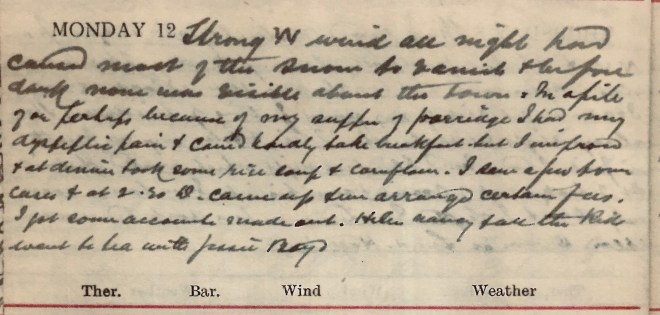 MONDAY 12 Strong W wind all night had
caused most of the snow to vanish & before
dark none was visible about the town. In spite
of or perhaps because of my supper of porridge I had my
dyspeptic pain & could hardly take breakfast but I improved
& at dinner took some rice soup & cornflour. I saw a few town
cases & at 2.30 D. came up & we arranged certain fees.
I got some accounts made out. Helen Nancy & all the Kids
went to tea with Jessie Boyd
Ther. Bar. Wind Weather